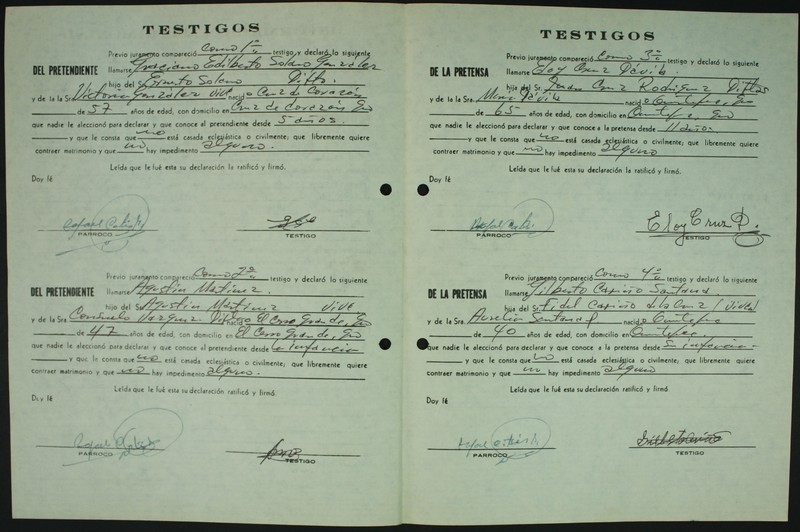 TESTIGOS
Previo juramento compareció como 1º testigo y declaró lo siguiente
DEL PRETENDIENTE llamarse Graciano Edilberto Solano González
hijo del Sr. Ernesto Solano Difto.
y de la Sra. Victoria González vive nació Cruz de Corazón
de 57 años de edad, con domicilio en Cruz de Corazón, Gro
que nadie le aleccionó para declarar y que conoce al pretendiente desde 5 años.
y que le consta que no está casada eclesiástica o civilmente; que libremente quiere
contraer matrimonio y que no hay impedimento alguno.
Leída que le fué esta su declaración la ratificó y firmó.
Doy fé
PARROCO
TESTIGO
Previo juramento compareció como 2º testigo y declaró lo siguiente
DEL PRETENDIENTE llamarse Agustín Martínez
hijo del Sr. Agustín Martínez vive
y de la Sra. Consuelo Vargas nació El Cerro Grande, Gro
de 47 años de edad, con domicilio en El Cerro Grande, Gro
que nadie le aleccionó para declarar y que conoce al pretendiente desde la infancia
y que le consta que no está casada eclesiástica o civilmente; que libremente quiere
contraer matrimonio y que no hay impedimento alguno.
Leída que le fué esta su declaración ratificó y firmó
Doy fé
PARROCO
TESTIGO
TESTIGOS
Previo juramento compareció como 3º testigo y declaró lo siguiente
DE LA PRETENSA llamarse Eloy Cruz Dávila.
hijo del Sr. Cruz Rodríguez Diftos
y de la Sra. Dávila nació
de 65 años de edad, con domicilio en
que nadie le aleccionó para declarar y que conoce a la pretensa desde 11 años.
y que le consta que no está casada eclesiástica o civilmente; que libremente quiere
contraer matrimonio y que no hay impedimento alguno
Leída que le fué esta su declaración la ratificó y firmó.
Doy fé
PARROCO
Eloy Cruz D.
TESTIGO
Previo juramento compareció como 4º testigo y declaró lo siguiente
DE LA PRETENSA llamarse Gilberto Santana
hijo del Sr. de la Cruz (vive)
y de la Sra. Aurelia Santana nació
de 40 años de edad, con domicilio en
que nadie le aleccionó para declarar y que conoce a la pretensa desde su infancia
y que le consta que no está casada eclesiástica o civilmente; que libremente quiere
contraer matrimonio y que no hay impedimento alguno
Leída que le fué esta su declaración ratificó y firmó.
Doy fé
PARROCO
TESTIGO